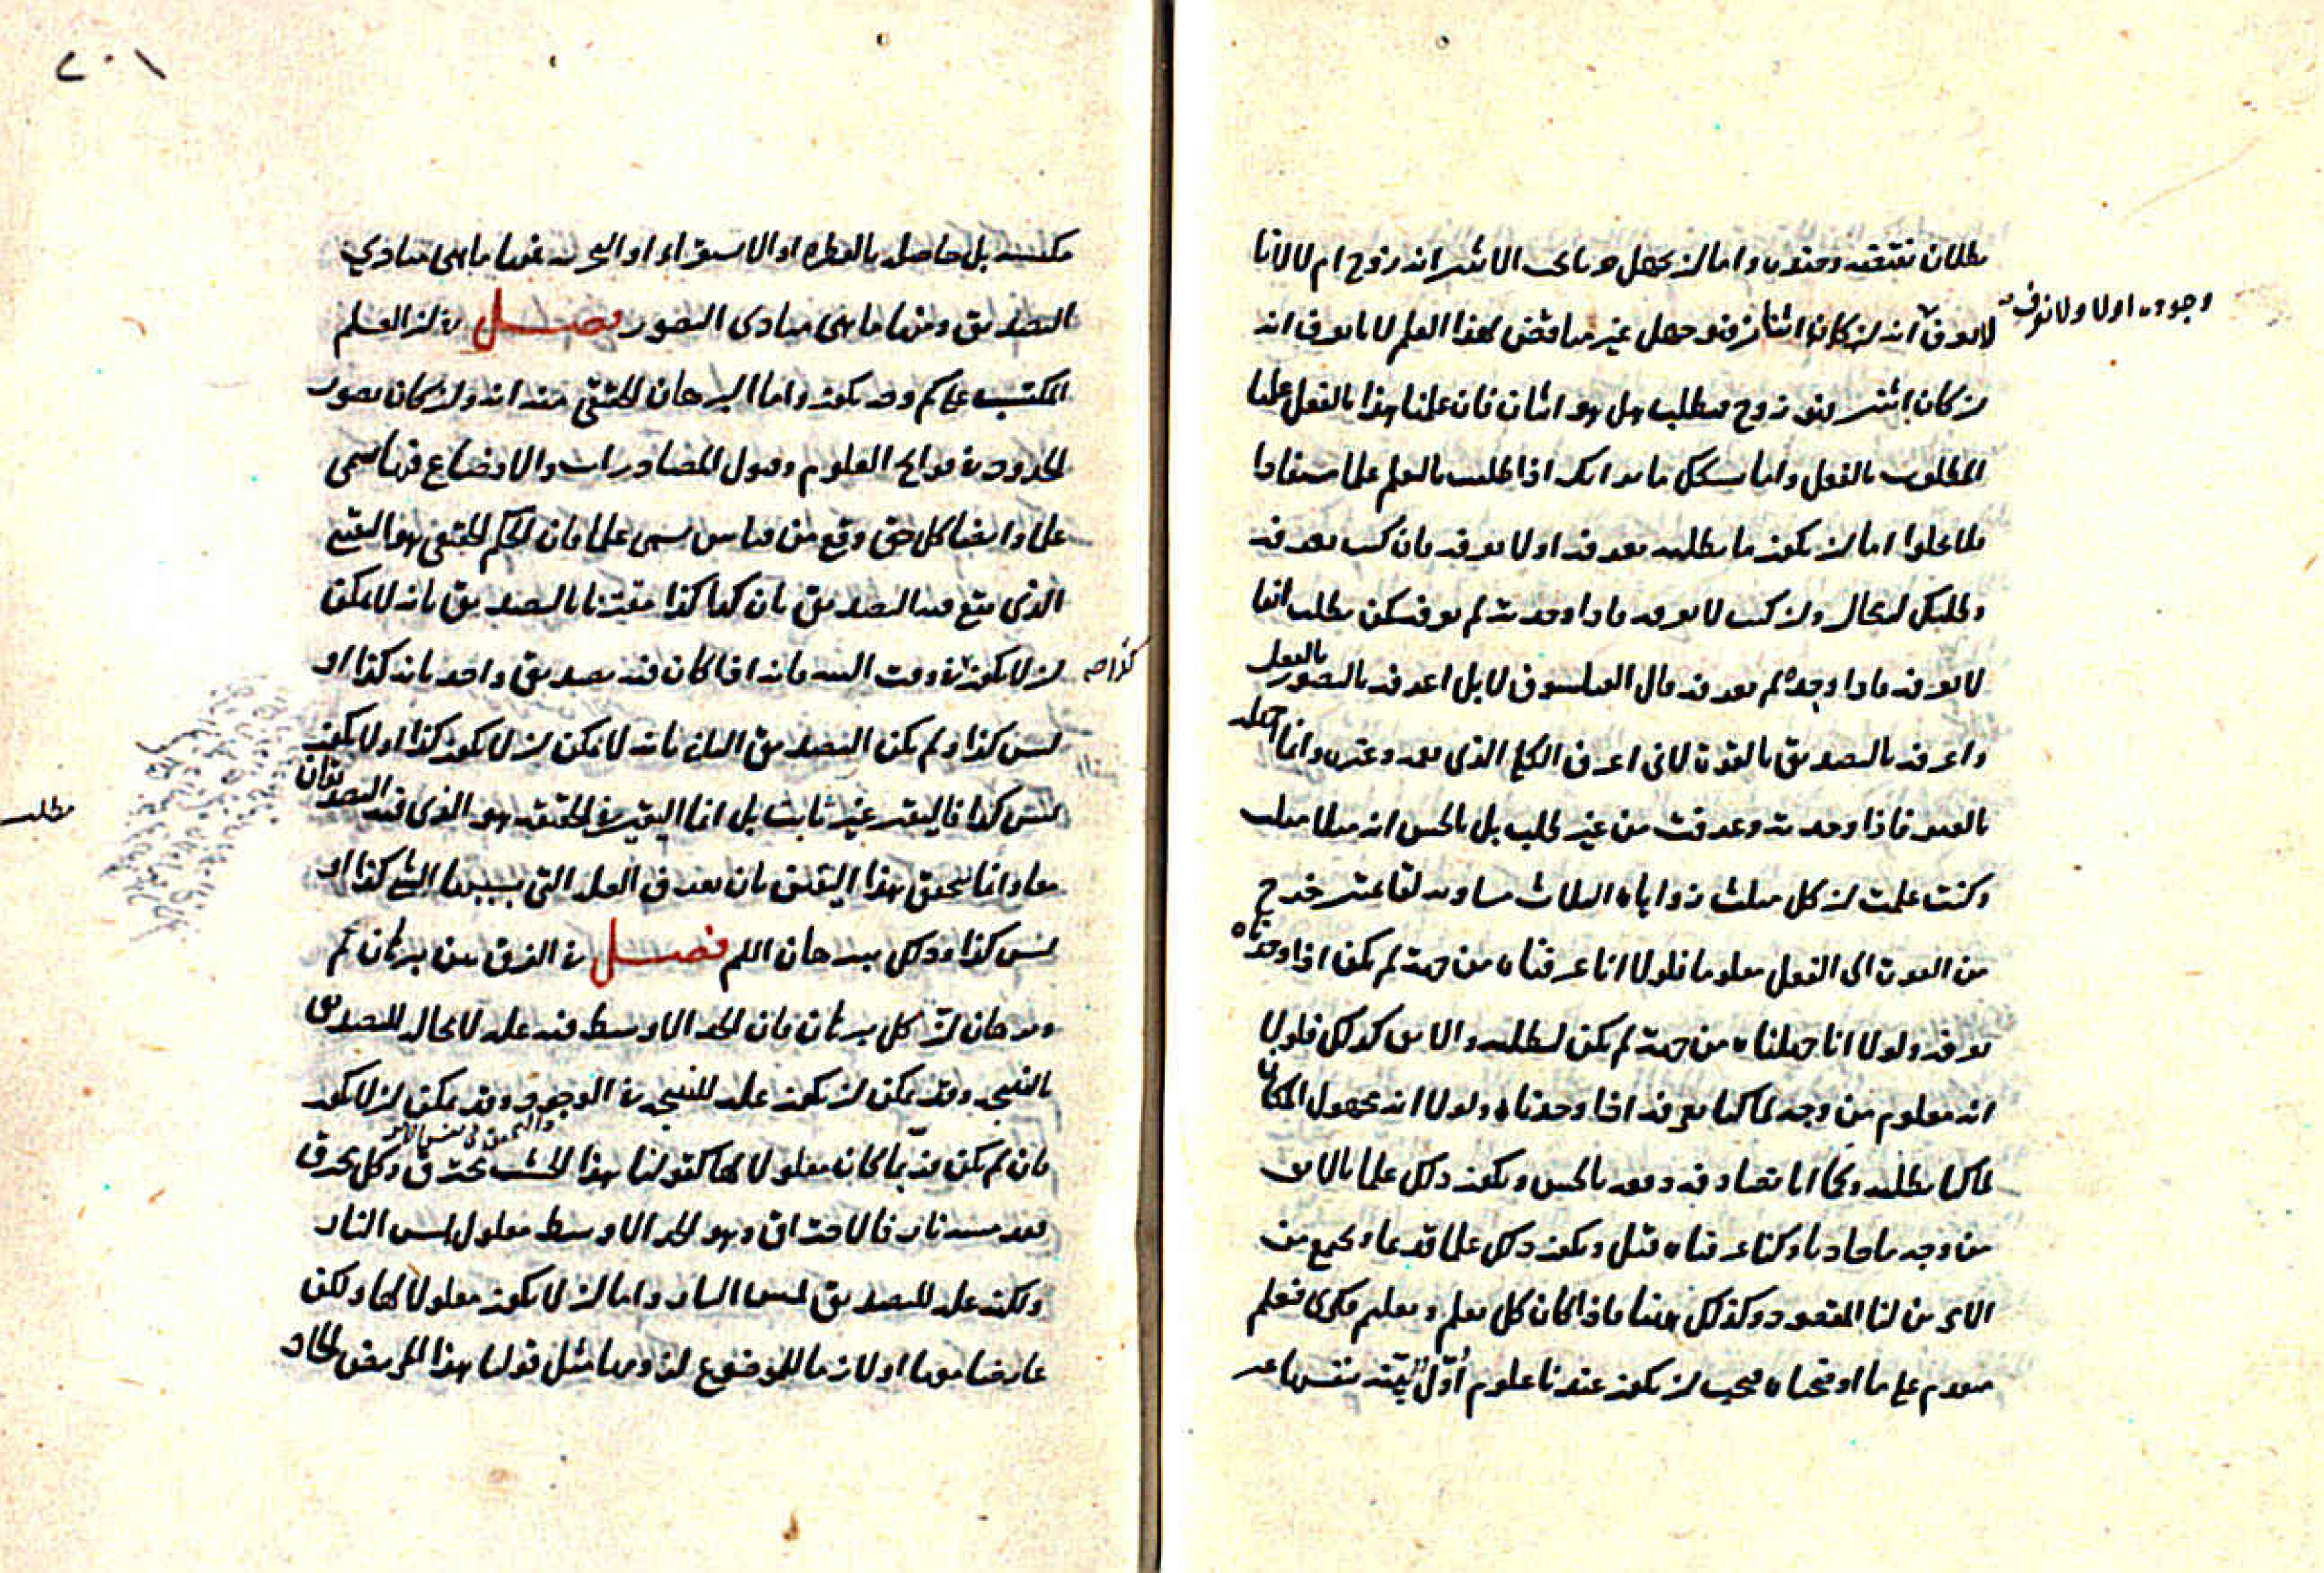 وجوده اولا ولا نعرف
بطلان نقيضه وجنوبه واما ان يجهل هو ما يحب الاثنين انه زوج ام لا لانا
لا نعرف انه ان كان اثنان فهو جهل غير مناقض لهذا العلم لانا نعرف انه
ان كان اثنين فهو زوج فيطلب هل هو اثنان فان علمنا هذا بالفعل علمنا
المطلوب بالفعل واما بشكل مانن انك اذا طلبت بالعلم علما مستفادا
فلا يخلوا اما ان يكون ما يطلبه تعرفه او لا تعرفه فان كنت تعرفه
وطلبك له محال وان كنت لا تعرفه فاذا وجدته لم تعرف كمن يطلب ابقا
لا يعرفه فاذا وجده لم يعرفه قال الفيلسوف لا بل اعرفه بالتصور بالفعل
واعرفه بالتصديق بالقوة لاني اعرف الكلي الذي يعمه وغيره وانما اجهله
بالعين فاذا وجدته وعرفت من غير طلب بل بالحس انه مثلا مثلث
وكنت علمت ان كل مثلث زواياه الثلاث مساوية لقائمتين خرج
من القوة الى الفعل معلوما فلولا انا عرفناه من جهة لم يكن اذا وجدناه
نعرفه ولولا انا جهلناه من جهة لم يكن لنطلبه والابق كذلك فلولا
انه معلوم من وجه لما كنا نعرفه اذا وجدناه ولولا انه مجهول المكان
لما كنا نطلبه وكما انا نصادفه ونعرفه بالحس ويكون ذلك علما بالابق
من وجه ما حادثا وكنا عرفناه قبل ويكون ذلك علما قديما ويجتمع من
الامرين لنا المقصود وكذلك ههنا فاذا كان كل تعليم وتعلم فكري فبعلم
متقدم على ما اوضحناه فيجب ان يكون عندنا علوم اول بينة بنفسها غير
٢٠١
مكتسبة بل حاصلة بالفطرة او الاستقراء او التجربة فمنها ما هي مبادي
التصديق ومنها ما هي مبادى التصور فصل في ان العلم
المكتسب على كم وجه يكون واما البرهان الحقيقي منه انه وان كان تصور
الحدود في فواتح العلوم وقبول المصادرات والاوضاع قد تسمى
علما وايضا كل حق وقع من قياس يسمى علما فان الحكم الحقيقي هو اليقين
الذي يقع فيه التصديق بان كذا كذا مقترنا بالتصديق بانه لا يمكن
ان لا يكون في وقت البتة فانه اذا كان فيه تصديق واحد بانه كذا او
كذا صح
ليس كذا ولم يكن التصديق الثاني بانه لا يمكن ان لا يكون كذا او لا يكون
ليس كذا فاليقين غير ثابت بل انما اليقين في الحقيقة هو الذي فيه التصديقان
مطلب
معا وانما يتحقق هذا اليقين بان نعرف العلة التي بسببها الشيء كذا او
ليس كذا وذلك ببرهان اللم فصل في الفرق بين برهان لم
وبرهان ان كل برهان فان الحد الاوسط فيه علة لا محالة للتصديق
بالنتيجة وقد يمكن ان يكون علة للنتيجة في الوجود وقد يمكن ان لا يكون
والتحقق في نفس الامر
فان لم يكن فربما كان معلولا لها كقولنا هذا الخشب محترق وكل محترق
فقد مسته نار فالاحتراق وهو الحد الاوسط معلول لمس النار
ولكنه علة للتصديق بمس النار واما ان لا يكون معلولا لها ولكن
عارضا معها او لازما للموضوع لزومها مثل قولنا هذا المريض الحاد